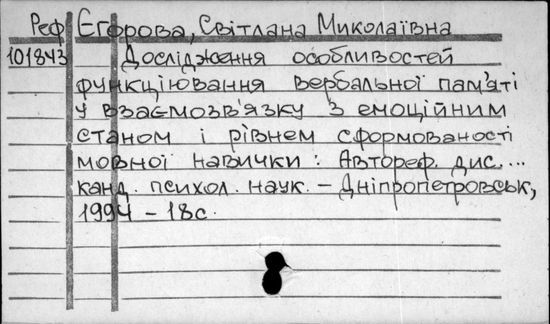 Реф Єгорова, Світлана Миколаївна
101843 Дослідження особливостей
функціювання вербальної пам'яті
у взаємозв'язку з емоційним
станом і рівнем сформованості
мовної навички : Автореф. дис. ...
канд. психол. наук. – Дніпропетровськ,
1994 – 18с.